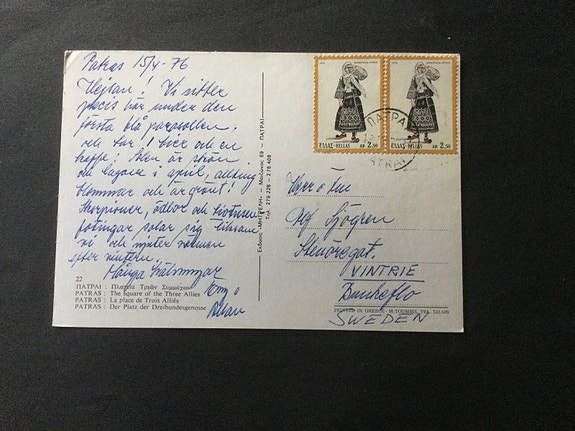 Patras 15/4-76
Hejsan! Vi sitter
precis här under den
första blå parasollen
och tar 1 bier och en
kaffe! Visst är våren
och i april, allting
blommar och är grönt!
Skorpioner, ödlor och
solar sig
vi och njuter
efter vintern.
Många hälsningar
22
ΠΑΤΡΑΙ : Πλατεῖα Τριῶν Συμμάχων
PATRAS : The Square of the Three Allies
PATRAS : La place de Trois Alliés
PATRAS : Der Platz der Dreibundesgenosse
Ἐκδόσεις «ΜΗΤΡΕΛΗ» - Μαιζῶνος 69 - ΠΑΤΡΑΙ
Τηλ. 279 228 - 276 408
ΕΛΛΑΣ-HELLAS ΔΡ 2,50
ΕΛΛΑΣ-HELLAS ΔΡ 2,50
ΠΑΤΡΑΙ
PATRAI
Herr o Fru
Leif Sjögren
Stenöregat.
VINTRIE
Bunkeflo
SWEDEN
PRINTED IN GREECE - M. TOUMBIS, TEL.